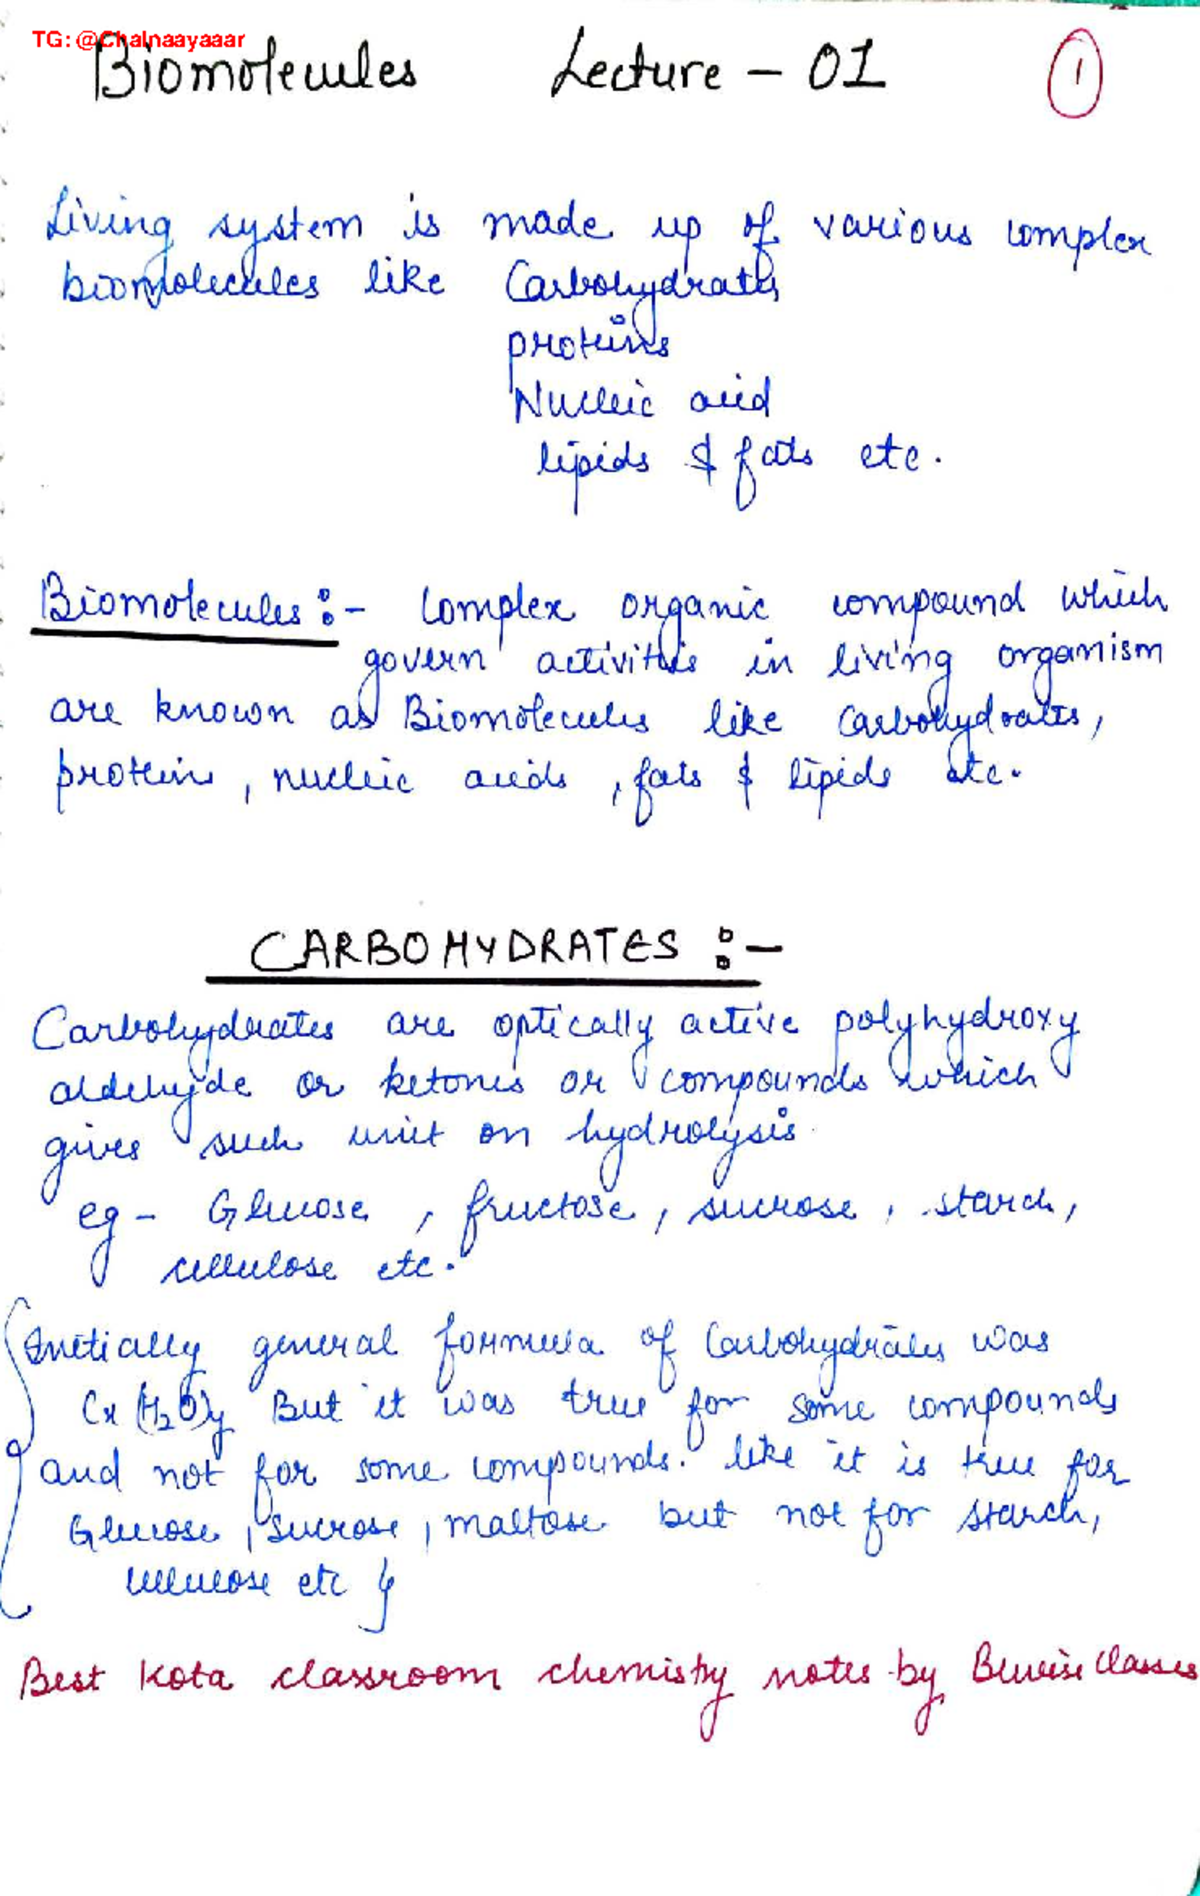 TG: @Chalnaayaaar
Biomolecules Lecture - 01 1
Living system is made up of various complex
biomolecules like Carbohydrates
proteins
Nucleic acid
lipids & fats etc.
Biomolecules :- Complex organic compound which
govern activities in living organism
are known as Biomolecules like Carbohydrates,
protein, nucleic acids, fats & lipids etc.
CARBOHYDRATES :-
Carbohydrates are optically active polyhydroxy
aldehyde or ketones or compounds which
gives such unit on hydrolysis.
eg - Glucose, fructose, sucrose, starch,
cellulose etc.
{Initially general formula of Carbohydrates was
Cx(H₂O)y But it was true for some compounds
and not for some compounds. like it is true for
Glucose, sucrose, maltose but not for starch,
cellulose etc}
Best Kota classroom chemistry notes by Bewise Classes